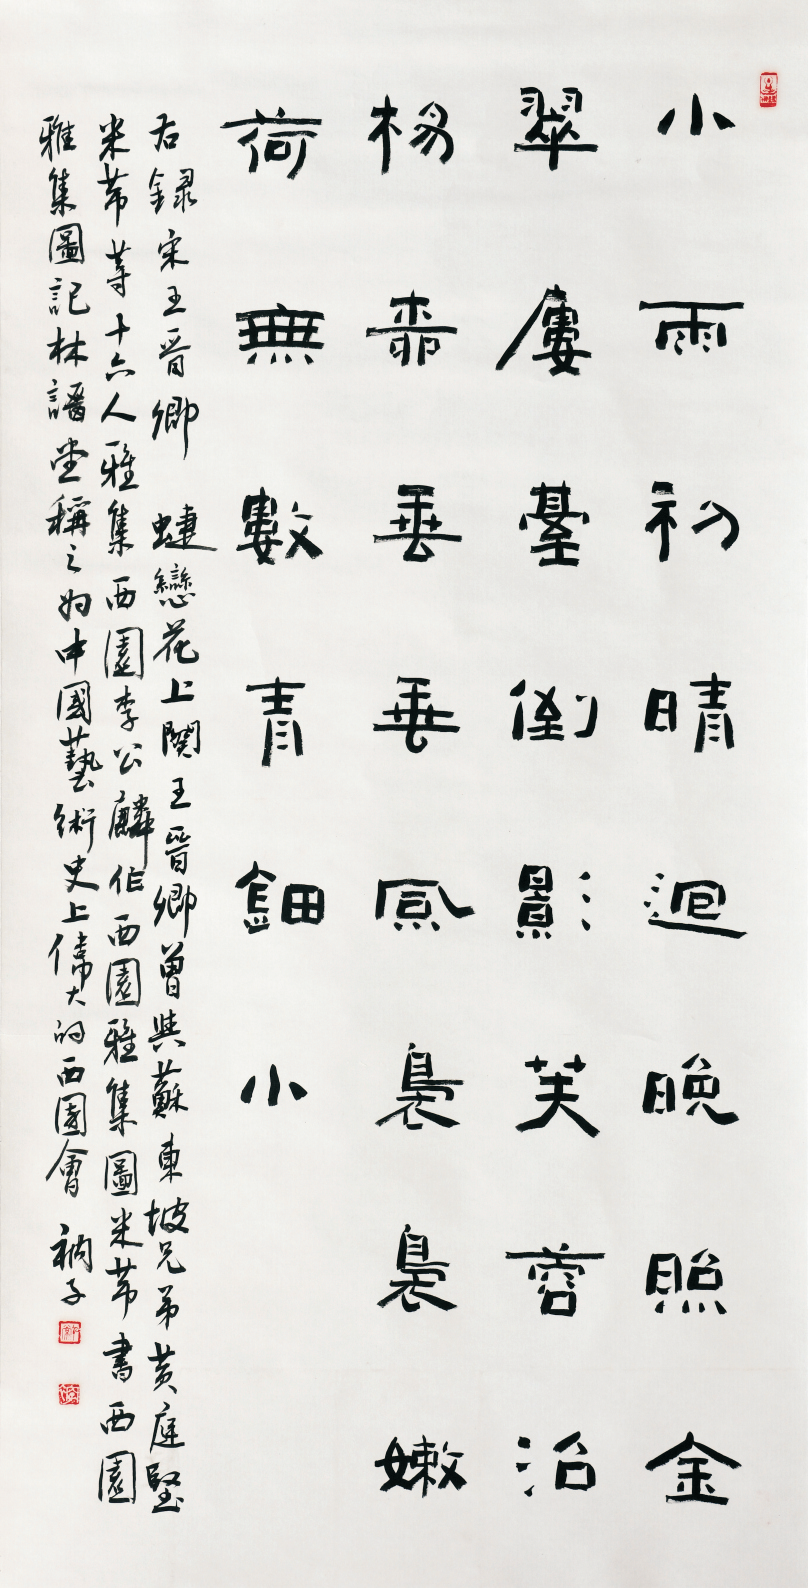 小雨初晴迴晚照金
翠廔臺倒影芙蓉沼
楊桺垂垂風裊裊嫩
荷無數青鈿小
右録宋王晉卿 蝶戀花上闋王晉卿曾與蘇東坡兄弟黃庭堅
米芾等十六人雅集西園李公麟作西園雅集圖米芾書西園
雅集圖記林語堂稱之为中國藝術史上偉大的西園會 衲子